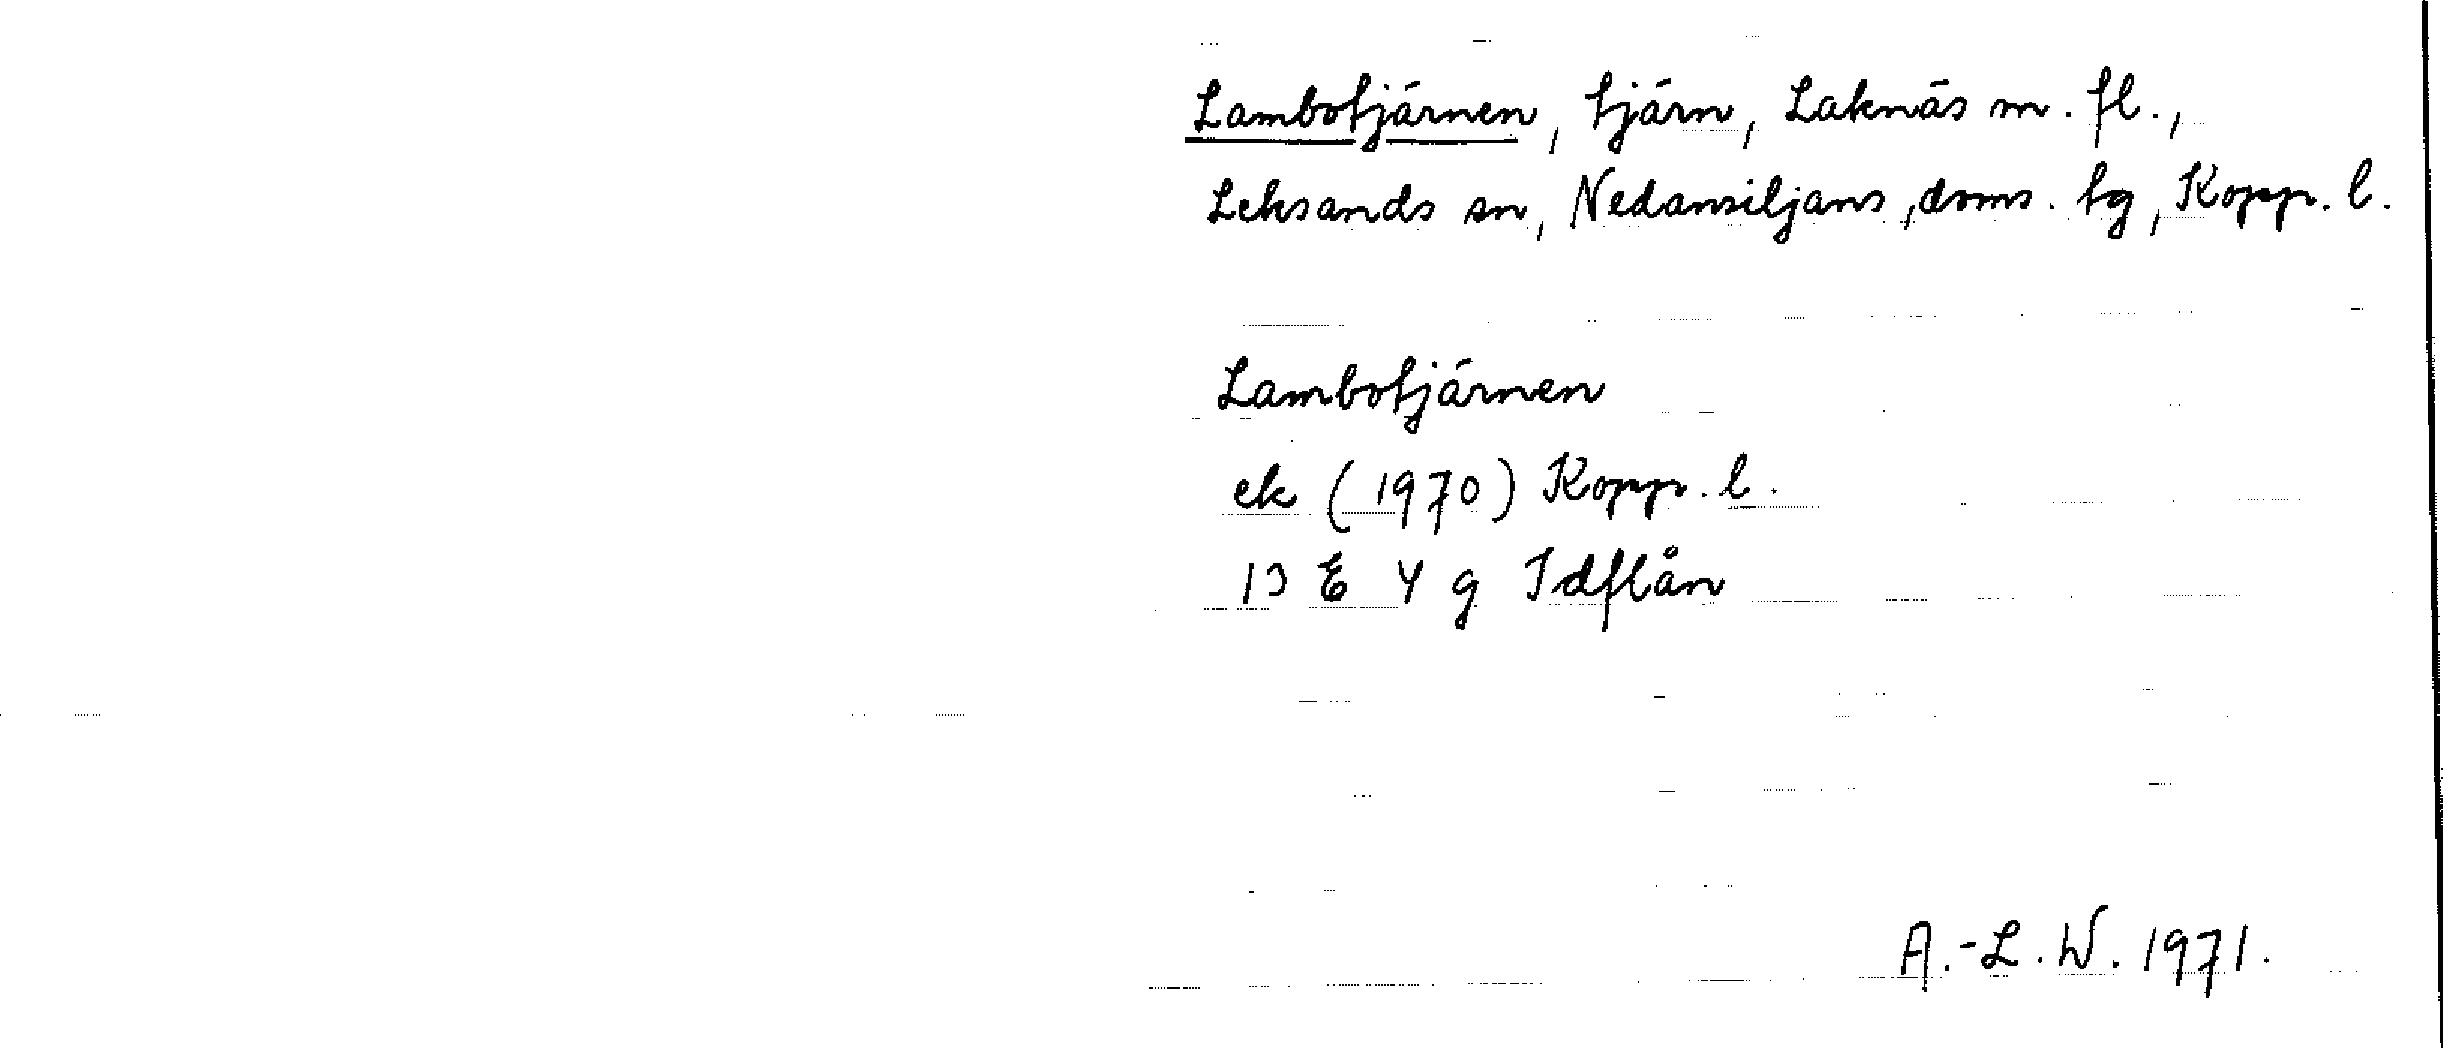 Lambotjärnen, tjärn, Laknäs m. fl.,
Leksands sn, Nedansiljans, doms. tg, Kopp. l.
Lambotjärnen
ek (1970) Kopp. l.
13 E 4 g Idflån
A.-L. W. 1971.